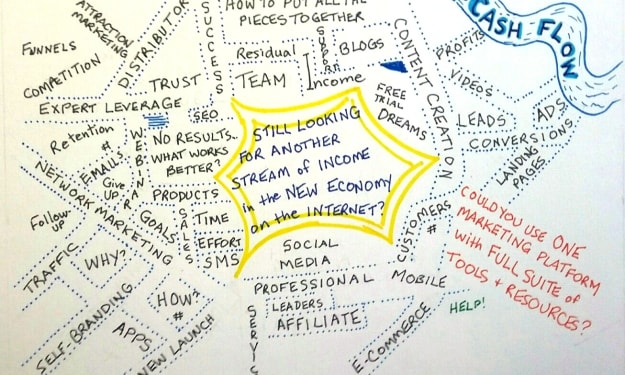 HOW TO PUT ALL THE
PIECES TOGETHER
ATTRACTION
MARKETING
DISTRIBUTOR
SUCCESS
FUNNELS
COMPETITION
Residual
Income
TEAM
SUPPORT
BLOGS
CONTENT CREATION
PROFITS
CASH FLOW
VIDEOS
TRUST
EXPERT LEVERAGE
SEO
FREE
TRIAL
DREAMS
LEADS
ADS
CONVERSIONS
LANDING
PAGES
Retention
#
WEBINAR
NO RESULTS..
WHAT WORKS
BETTER?
STILL LOOKING
FOR ANOTHER
STREAM of INCOME
in the NEW ECONOMY
on the INTERNET?
EMAILS
Give
UP
NETWORK MARKETING
PRODUCTS
GOALS
SALES
TIME
EFFORT
SMS
Follow
UP
TRAFFIC
WHY?
SOCIAL
MEDIA
CUSTOMERS
#
COULD YOU USE ONE
MARKETING PLATFORM
with FULL SUITE of
TOOLS + RESOURCES?
PROFESSIONAL
MOBILE
HOW?
#
SELF-BRANDING
APPS
NEW LAUNCH
LEADERS
AFFILIATE
E-COMMERCE
HELP!